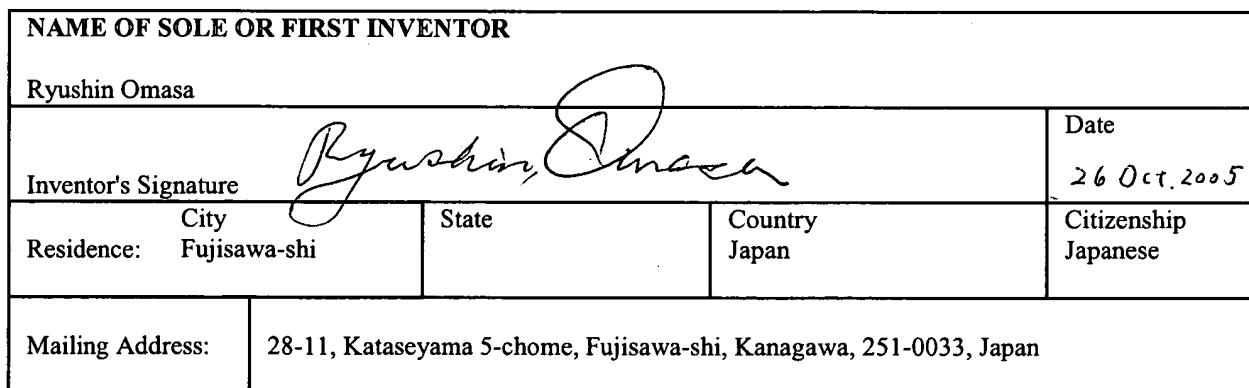 NAME OF SOLE OR FIRST INVENTOR
Ryushin Omasa
Inventor's Signature Ryushin, Omasa
Date
26 Oct. 2005
Residence: City
Fujisawa-shi
State
Country
Japan
Citizenship
Japanese
Mailing Address: 28-11, Kataseyama 5-chome, Fujisawa-shi, Kanagawa, 251-0033, Japan